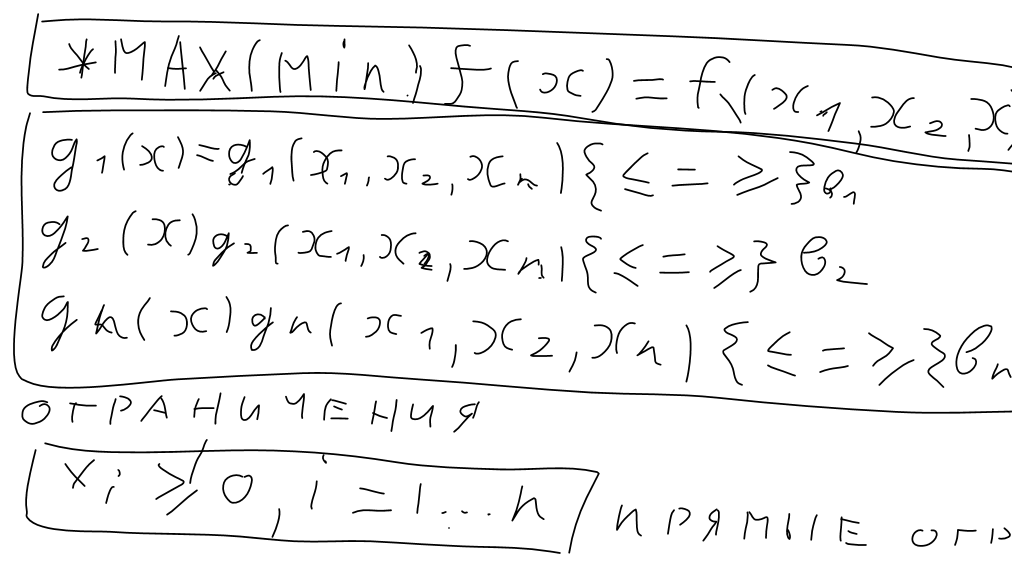 *MAX(Min) f(x) = f(x₁, x₂, x
g₁(x)=g₁(x₁, x₂, xₙ) {≤ = ≥} в₁
g₂(x) g₂(x₁, x₂, xₙ) {≤ = ≥} в₂
gn(x) gn(x₁, x₂, xₙ) {≤ = ≥} вₙ
ОГРАНИЧЕНИЯ
xᵢ ≥ 0, i = 1...n ПРЯМЫЕ ОГР